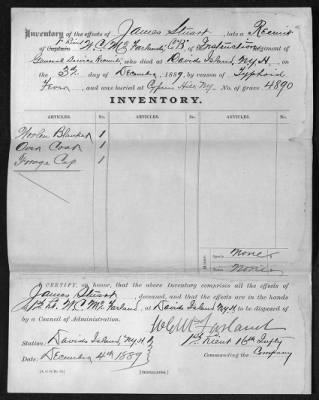 Inventory of the effects of James Stuart, late a Recruit
of Captain 1st Lieut W. C. McFarland, Co "B" of Instruction
General Service Recruits, who died at Davids Island, N.Y.H.
on the 3d day of December, 1889, by reason of Typhoid
Fever, and was buried at Cypress Hill N.Y. No. of grave 4890
INVENTORY.
ARTICLES. No. ARTICLES. No. ARTICLES. No.
Woolen Blanket 1
Over Coat 1
Forage Cap 1
None
None
I CERTIFY, on honor, that the above Inventory comprises all the effects of
James Stuart, deceased, and that the effects are in the hands
1st Lt. W. C. McFarland, at Davids Island N.Y.H. to be disposed of
by a Council of Administration.
W. C. McFarland
Station: Davids Island, N.Y.H.
1st Lieut 16th Infty
Date: December 4th 1889
Commanding the Company